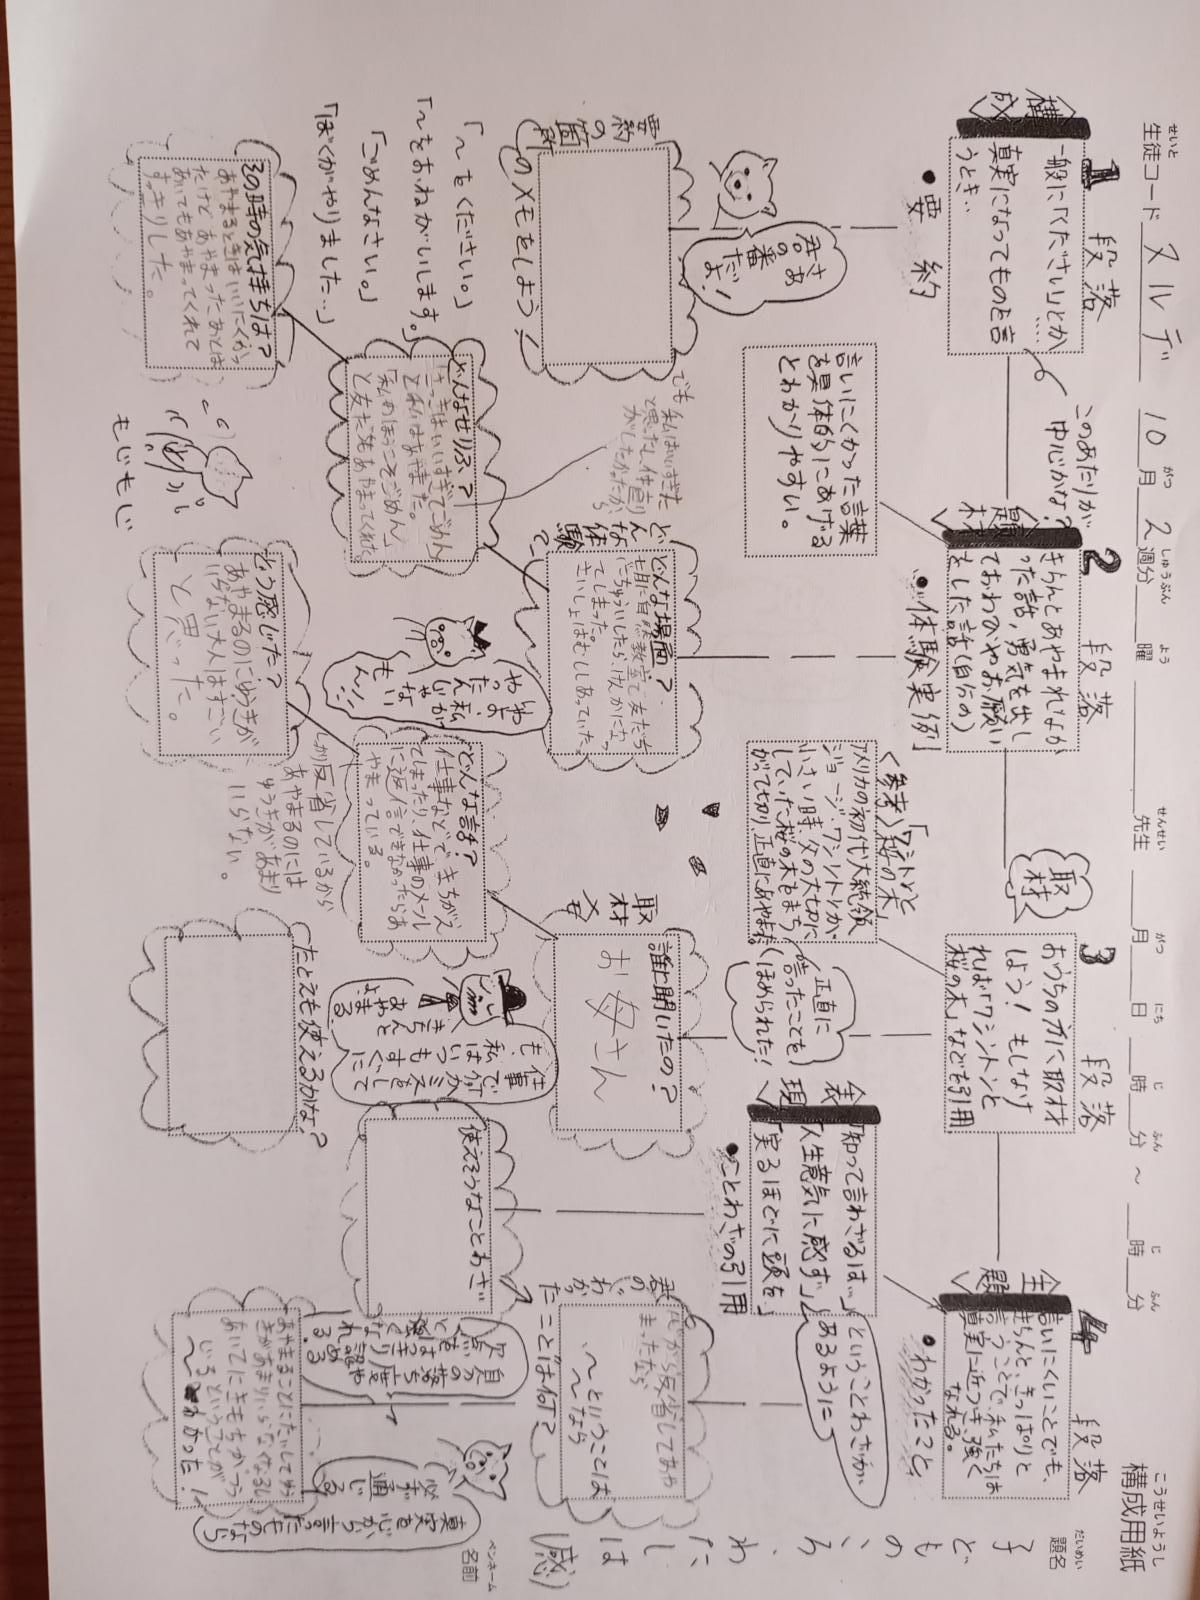 せいと
生徒コード ヌルデ 10月2週分 曜 先生 月 日 時 分 ～ 時 分
がつ しゅうぶん よう せんせい がつ にち じ ふん じ ふん
こうせいようし
構成用紙
だいめい
題名
子どものころ、わたしは(感)
ペンネーム
名前
1 段落
〈構成〉
一般に「ください」とか……
真実になってものを言
うとき…
このあたりが
中心かな?
・要約
言いにくかった言葉
を具体的にあげる
とわかりやすい。
さあ
君の
番
だよ!
要約の箇所
のメモをしよう!
「～もください。」
「～をおねがいします。」
「ごめんなさい。」
「ぼくがやりました…」
2 段落
〈題材〉
きちんとあやまれなか
った話,勇気を出し
ておわびやお願い
をした話(自分の)
・体験実例
どんな体験?
どんな場面?
七月に自然教室で友だち
にちゅういしたら、けんかになっ
てしまった。
さいしょはむししあっていた。
でも私はいいすぎた
と思ったし仲直り
がしたかったから
どんなせりふ?
「さっきはいいすぎてごめん」
と私はあやまった。
「私のほうこそごめん」
と友だちもあやまってくれた。
その時の気持ちは?
あやまるときはいいにくかっ
たけどあやまったあとは
あいてもあやまってくれて
すっきりした。
もじもじ
いやあ、
やったのは
私じゃ
ない
もん!!
3 段落
取材
おうちの方に取材
しよう! もしなけ
れば「ワシントンと
桜の木」などを引用
〈参考〉「ワシントンと
桜の木」
アメリカの初代大統領
ジョージ・ワシントンが、
小さい時、父の大切に
していた桜の木をまち
がって切り、正直にあやまった
(正直に
言ったことを
ほめられた!)
取材メモ
誰に聞いたの?
お母さん
どんな話?
仕事などで、まちがえ
てしまったり、仕事のメール
に返信できなかったらあ
やまっている。
どう感じた?
あやまるのにゆうきが
いらない大人はすごい
と思った。
しかり反省しているから
あやまるのには
ゆうきがあまり
いらない。
仕事で何かミスをして
も、私はいつもすぐに
きちんと
あやまる
よ
たとえも使えるかな?
4 段落
〈主題〉
言いにくいことでも、
きちんと、きっぱりと
言うことで、私たちは
真実に近づき、強く
なれる。
・わかったこと
〈表現〉
「知って言わざるは…」
「人生意気に感ず」
「実るほどに頭を」
ということわざが
あるように
・ことわざの引用
使えそうなことわざ
君のわかったことは何?
心から反省してあや
まったなら
～ということは
～なら
あやまることにたいしてゆう
きがあまりいらなくなるし
あいてにきもちがつう
じるということが
～わかった!
自分の落ち度や
欠点をはっきり認める
と強くなれる。
真実を心から言ったものなら
必ず通じる